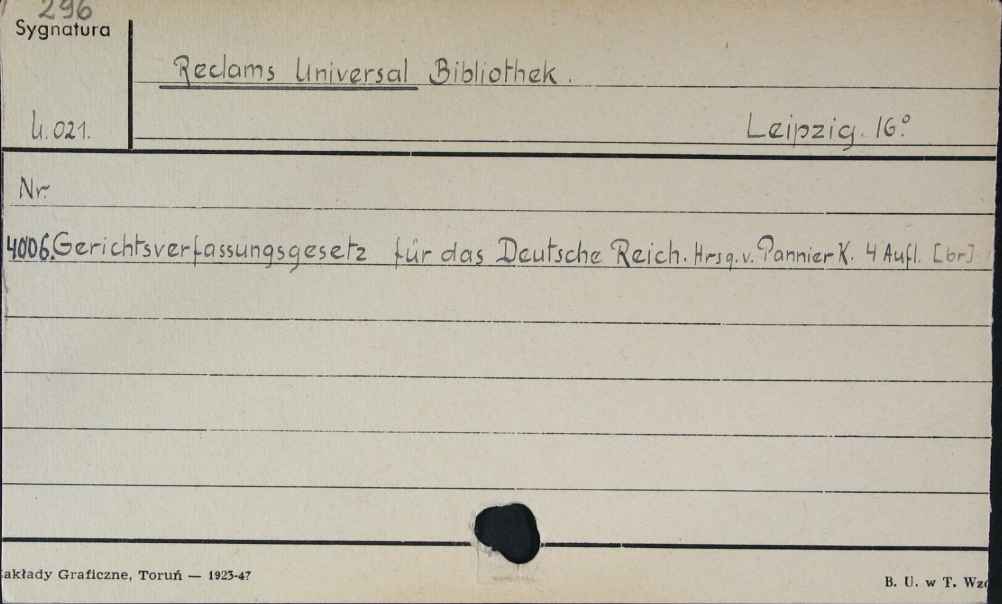 296
Sygnatura
Reclams Universal Bibliothek.
U.021.
Leipzig. 16.°
Nr.
4006. Gerichtsverfassungsgesetz für das Deutsche Reich. Hrsg. v. Pannier K. 4 Aufl. [br]
akłady Graficzne, Toruń — 1923-47
B. U. w T.